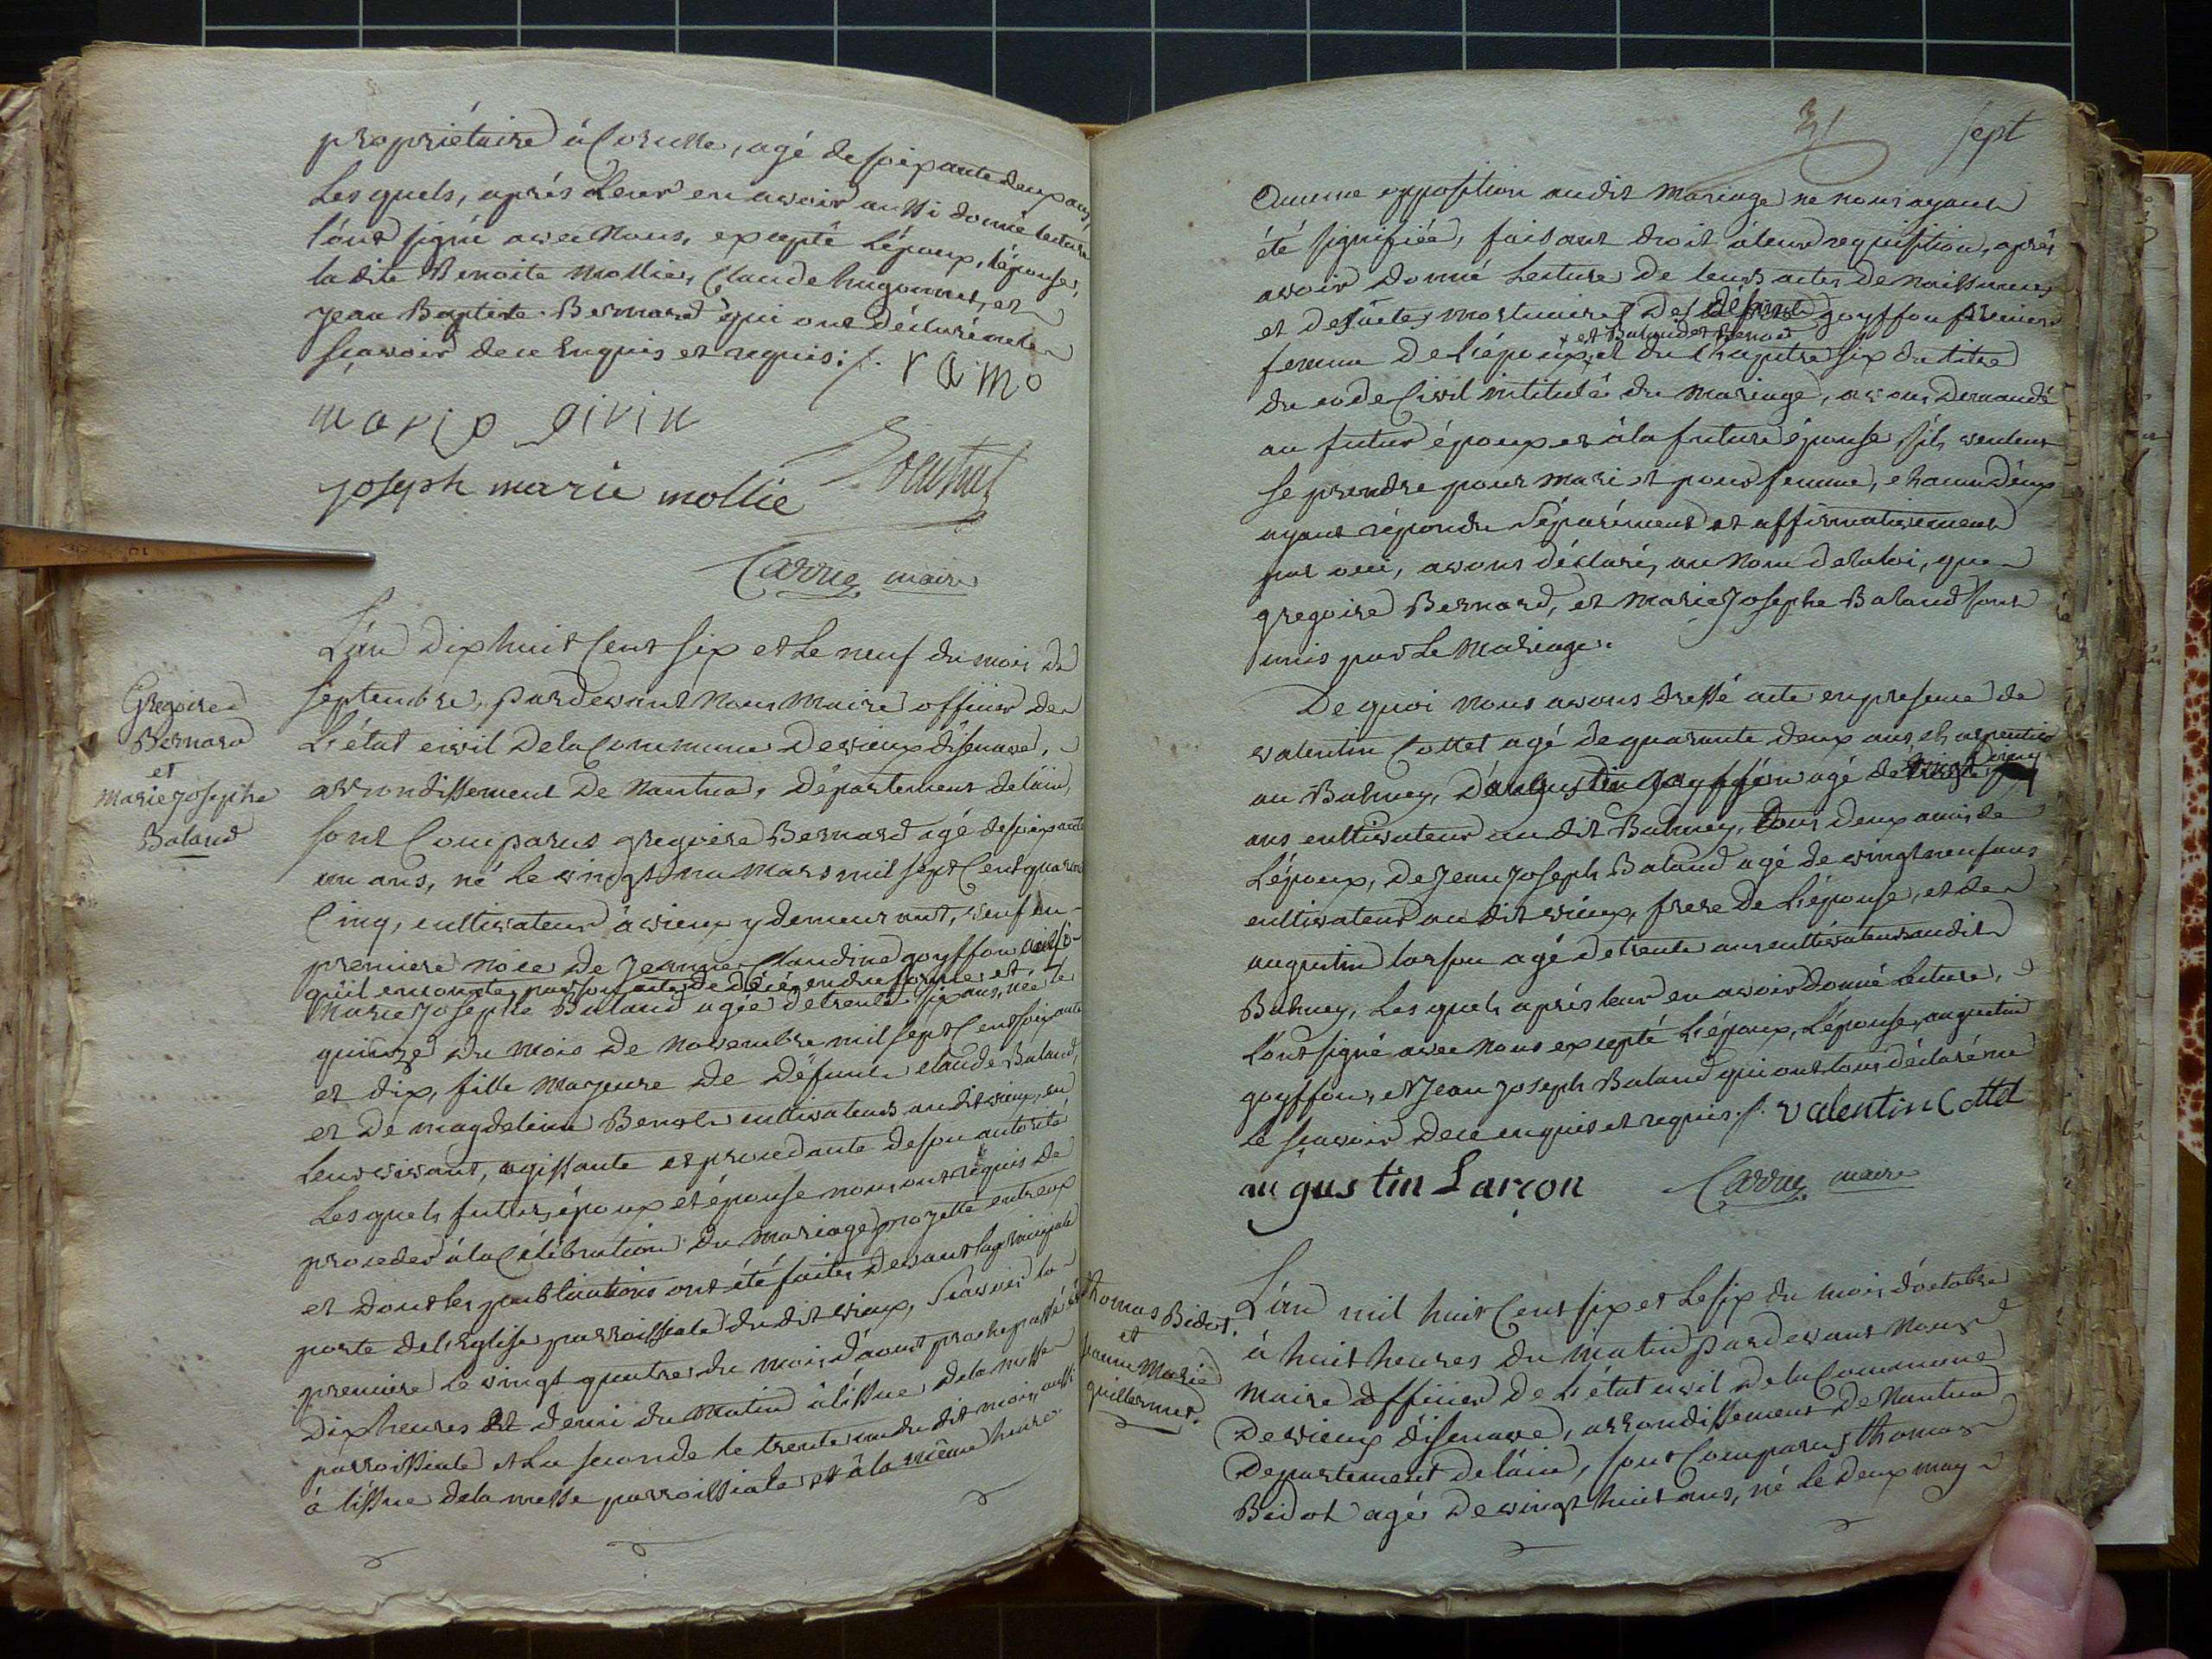 propriétaire à Corcelle, agé de soixante deux ans,
Les quels, après Leur en avoir aussi donné lecture
l'ont signé avec Nous, excepté L'époux, l'épouse,
la dite Benoite Mollie, Claude hugonnet, et
Jean Baptiste Bernard qui ont déclaré ne le
sçavoir de ce Enquis et requis ;/. ramo
mario girin
joseph marie mollie
Carrug maire
Gregoire
Bernard
et
Marie Josephe
Baland
L'an Dix huit Cent Six et Le neuf du mois de
septembre, pardevant Nous Maire officier de
L'état civil De la Commune De vieux d'isenave,
arrondissement De Nantua, Département de l'ain,
sont Comparus gregoire Bernard agé de soixante
un ans, né le vingt un Mars mil sept Cent quarante
Cinq, cultivateur à vieux y demeurant, veuf en
premiere noce De Jeanne Claudine goyffon ainsi
qu'il en conste par son acte de décé en due forme, et
Marie Josephe Baland agée de trente six ans, née le
quinze du mois De Novembre mil sept Cent soixante
et dix, fille Majeure De Défunts Claude Baland,
et De magdeleine Benod cultivateurs au dit vieux, en
Leur vivant, agissante et procedante de son autorité
Les quels futurs époux et épouse nous ont requis De
proceder à la Célébration du Mariage projetté entreux
et dont les publications ont été faites Devant la principale
porte de l'Eglise parroissiale du dit vieux, Scavoir la
premiere le vingt quatre du mois d'aout proche passé à
Dix heures et demi du Matin à l'issue De la messe
parroissiale et La seconde le trente un du dit mois, aussi
à l'issue de la messe parroissiale et à la même heure
31 sept
Aucune opposition au dit Mariage ne nous ayant
été signifiée, faisant droit à leur requisition, après
avoir Donné Lecture De leurs actes De Naissance
et des actes mortuaires Des goyffon premiere
x et Baland et Benod
femme De L'époux, et du Chapitre six du titre
du code Civil intitulé du Mariage, avons Demandé
au futur époux et à la future épouse s'ils veulent
se prendre pour mari et pour femme, chacun d'eux
ayant répondu Séparément et affirmativement
par oui, avons déclaré, au Nom de la loi, que
gregoire Bernard, et Marie Josephe Baland sont
unis par Le Mariage.
De quoi Nous avons dressé acte en presence de
valentin Cottet agé de quarante deux ans, charpentier
au Balmey, D'augustin Goyffon agé de
ans cultivateur au dit Balmey, tous deux amis de
L'époux, De Jean Joseph Baland agé de vingt neuf ans
cultivateur au dit vieux, frere De L'épouse, et de
augustin larson agé de trente ans cultivateur audit
Balmey, Les quels après leur en avoir donné Lecture,
L'ont signé avec Nous excepté L'époux, L'épouse, augustin
goyffon, et Jean Joseph Baland qui ont tous déclaré ne
Le sçavoir De ce enquis et requis ;/. valentin Cottet
augustin Larçon Carrug maire
thomas Bidot
et
jeanne Marie
guillermet.
L'an mil huit Cent six et Le six du mois d'octobre
à huit heures du Matin pardevant Nous
Maire officier de L'état civil De la Commune
De vieux d'isenave, arrondissement De Nantua
Departement De l'ain, sont Comparus thomas
Bidot agé De vingt huit ans, né le deux may